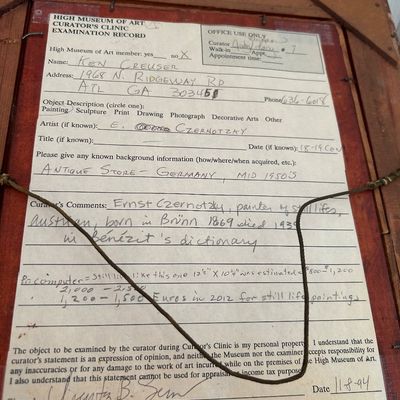 HIGH MUSEUM OF ART
CURATOR'S CLINIC
EXAMINATION RECORD
OFFICE USE ONLY
Curator
Walk-in Appt.
Appointment time:
High Museum of Art member: yes no X
Name: KEN CREUSER
Address: 1968 N. RIDGEWAY RD
ATL GA 30345 Phone 636-6018
Object Description (circle one):
Painting Sculpture Print Drawing Photograph Decorative Arts Other
Artist (if known): E. CZERNOTZKY
Title (if known): Date (if known): 18-19 CEN
Please give any known background information (how/where/when acquired, etc.):
ANTIQUE STORE - GERMANY, MID 1950'S
Curator's Comments: Ernst Czernotzky, painter of still lifes,
Austrian, born in Brünn 1869 died 1939
in Bénézit's dictionary
computer = Still life like this one 12¾" x 10¼" was estimated $800-$1,200
2,000 - 2,500
1,200 - 1,500 Euros in 2012 for still life paintings
The object to be examined by the curator during Curator's Clinic is my personal property. I understand that the
curator's statement is an expression of opinion, and neither the Museum nor the examiner accepts responsibility for
any inaccuracies or for any damage to the work of art incurred while on the premises of the High Museum of Art.
I also understand that this statement cannot be used for appraisal or income tax purposes.
Date 11-8-94